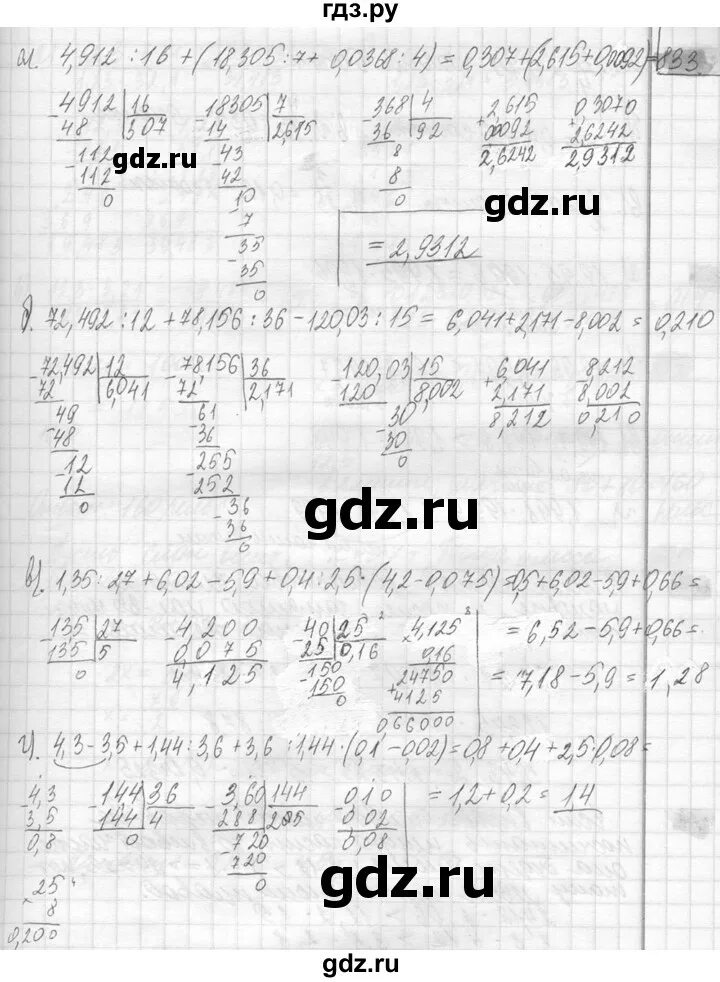 гдз.ру
а). 4,912 : 16 + (18,305 : 7 + 0,0368 : 4) = 0,307 + (2,615 + 0,0092) = 833.
4912 | 16 18305 | 7 368 | 4 2,615 0,3070
48 307 14 2,615 36 92 00092 2,6242
112 43 8 2,6242 2,9312
112 42 8
0 10 0
7
35 = 2,9312
35
0
gdz.ru
gdz.ru
б). 72,492 : 12 + 78,156 : 36 - 120,03 : 15 = 6,041 + 2,171 - 8,002 = 0,210
72,492 | 12 78156 | 36 120,03 | 15 6,041 8,212
72 6,041 72 2,171 120 8,002 2,171 8,002
49 61 30 8,212 0,210
48 36 30
12 255 0
12 252
0 36
36
0
gdz.ru
в). 1,35 : 2,7 + 6,02 - 5,9 + 0,4 : 2,5 · (4,2 - 0,075) = 0,5 + 6,02 - 5,9 + 0,66 =
135 | 27 4,200 40 | 25 4,125 = 6,52 - 5,9 + 0,66 =
135 5 0075 25 0,16 0,16 = 7,18 - 5,9 = 1,28
0 4,125 150 24750
150 4125
0 066000
г). 4,3 - 3,5 + 1,44 : 3,6 + 3,6 : 1,44 · (0,1 - 002) = 0,8 + 0,4 + 2,5 · 0,08 =
4,3 144 | 36 3,60 | 144 0,10 = 1,2 + 0,2 = 1,4
3,5 144 4 288 205 0,02
0,8 0 720 0,08
720
25 0
8
0,200
gdz.ru
gdz.ru